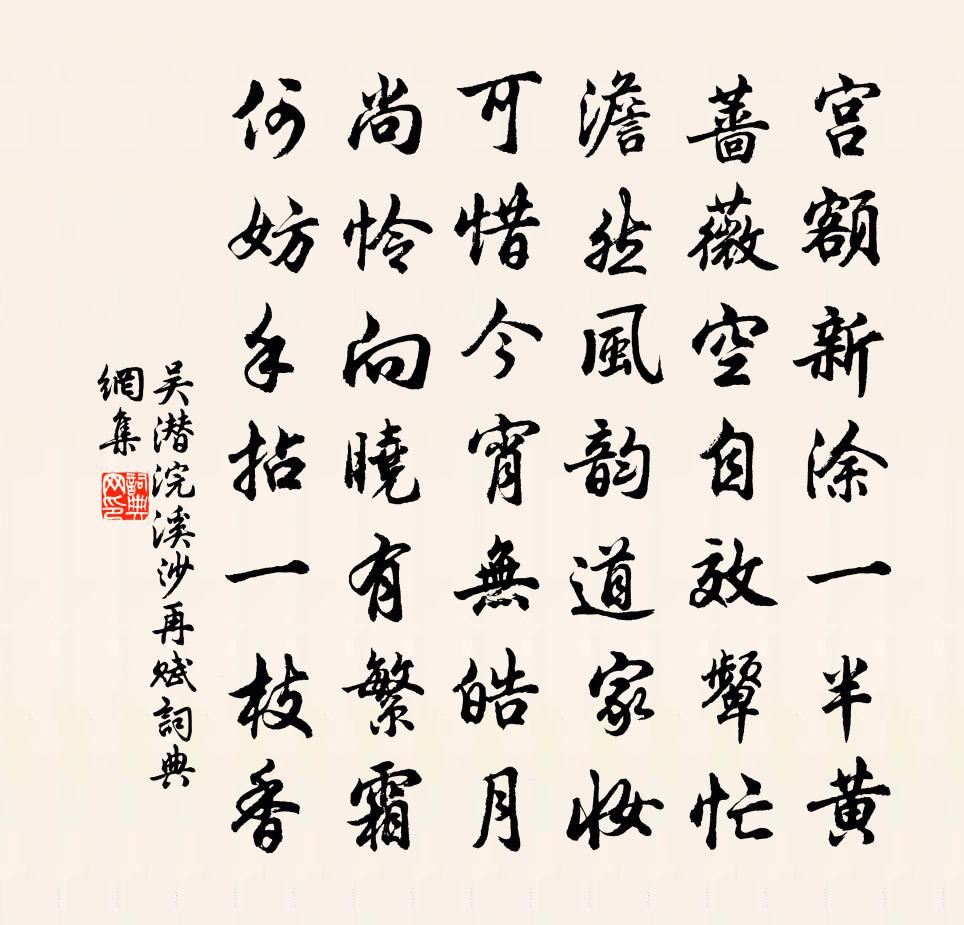 宫額新涂一半黄
薔薇空自效顰忙
澹然風韵道家妝
可惜今宵無皓月
尚怜向曉有繁霜
何妨手拈一枝香
吴潜浣溪沙再赋詞典
網集
詞典
网印